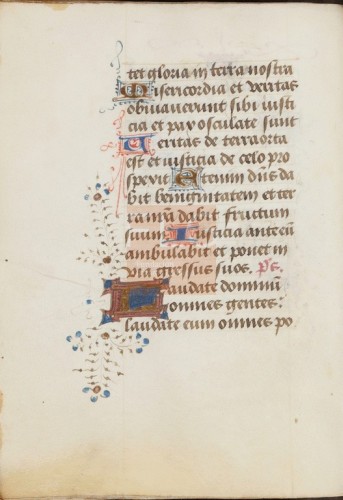 tet gloria in terra nostra
Misericordia et veritas
obviaverunt sibi iusti
cia et pax osculate sunt
Veritas de terra orta
est et iusticia de celo pro
spexit Etenim dn̄s da
bit benignitatem et ter
ra nr̄a dabit fructum
suum Iusticia ante eū
ambulabit et ponet in
via gressus suos. p̄s.
Laudate dominum
omnes gentes:
laudate eum omnes po